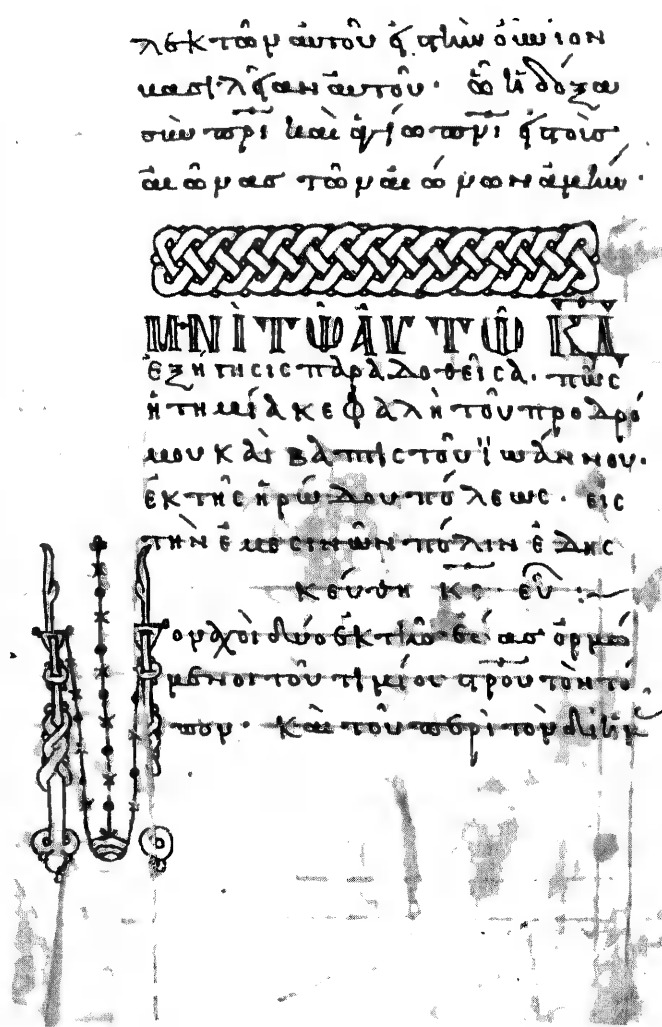 λεκτῶν αὐτοῦ εἰς τὴν αἰώνιον
βασιλείαν αὐτοῦ· ὧ ἡ δόξα
σὺν πρὶ καὶ ἁγίω πνι εἰς τοὺς
αἰῶνας τῶν αἰώνων ἀμήν·
ΜΗΝῚ ΤΩ ΑΥΤΩ ΚΔ
ἐξήτησις παραδοθεῖσα· πῶς
ἡ τιμία κεφαλὴ τοῦ προδρό
μου καὶ βαπτιστοῦ ἰωάννου·
ἐκ τῆς ἡρώδου πόλεως· εἰς
τὴν ἐμεσινῶν πόλιν ἐδης
κεύθη κε εὐ
μοναχοὶ δύο ἐκ τῆς ἑώας ὁρμώ
μενοι τοῦ τιμίου σταυροῦ τὸν τό
πον· καὶ τοῦ περὶ τὸν